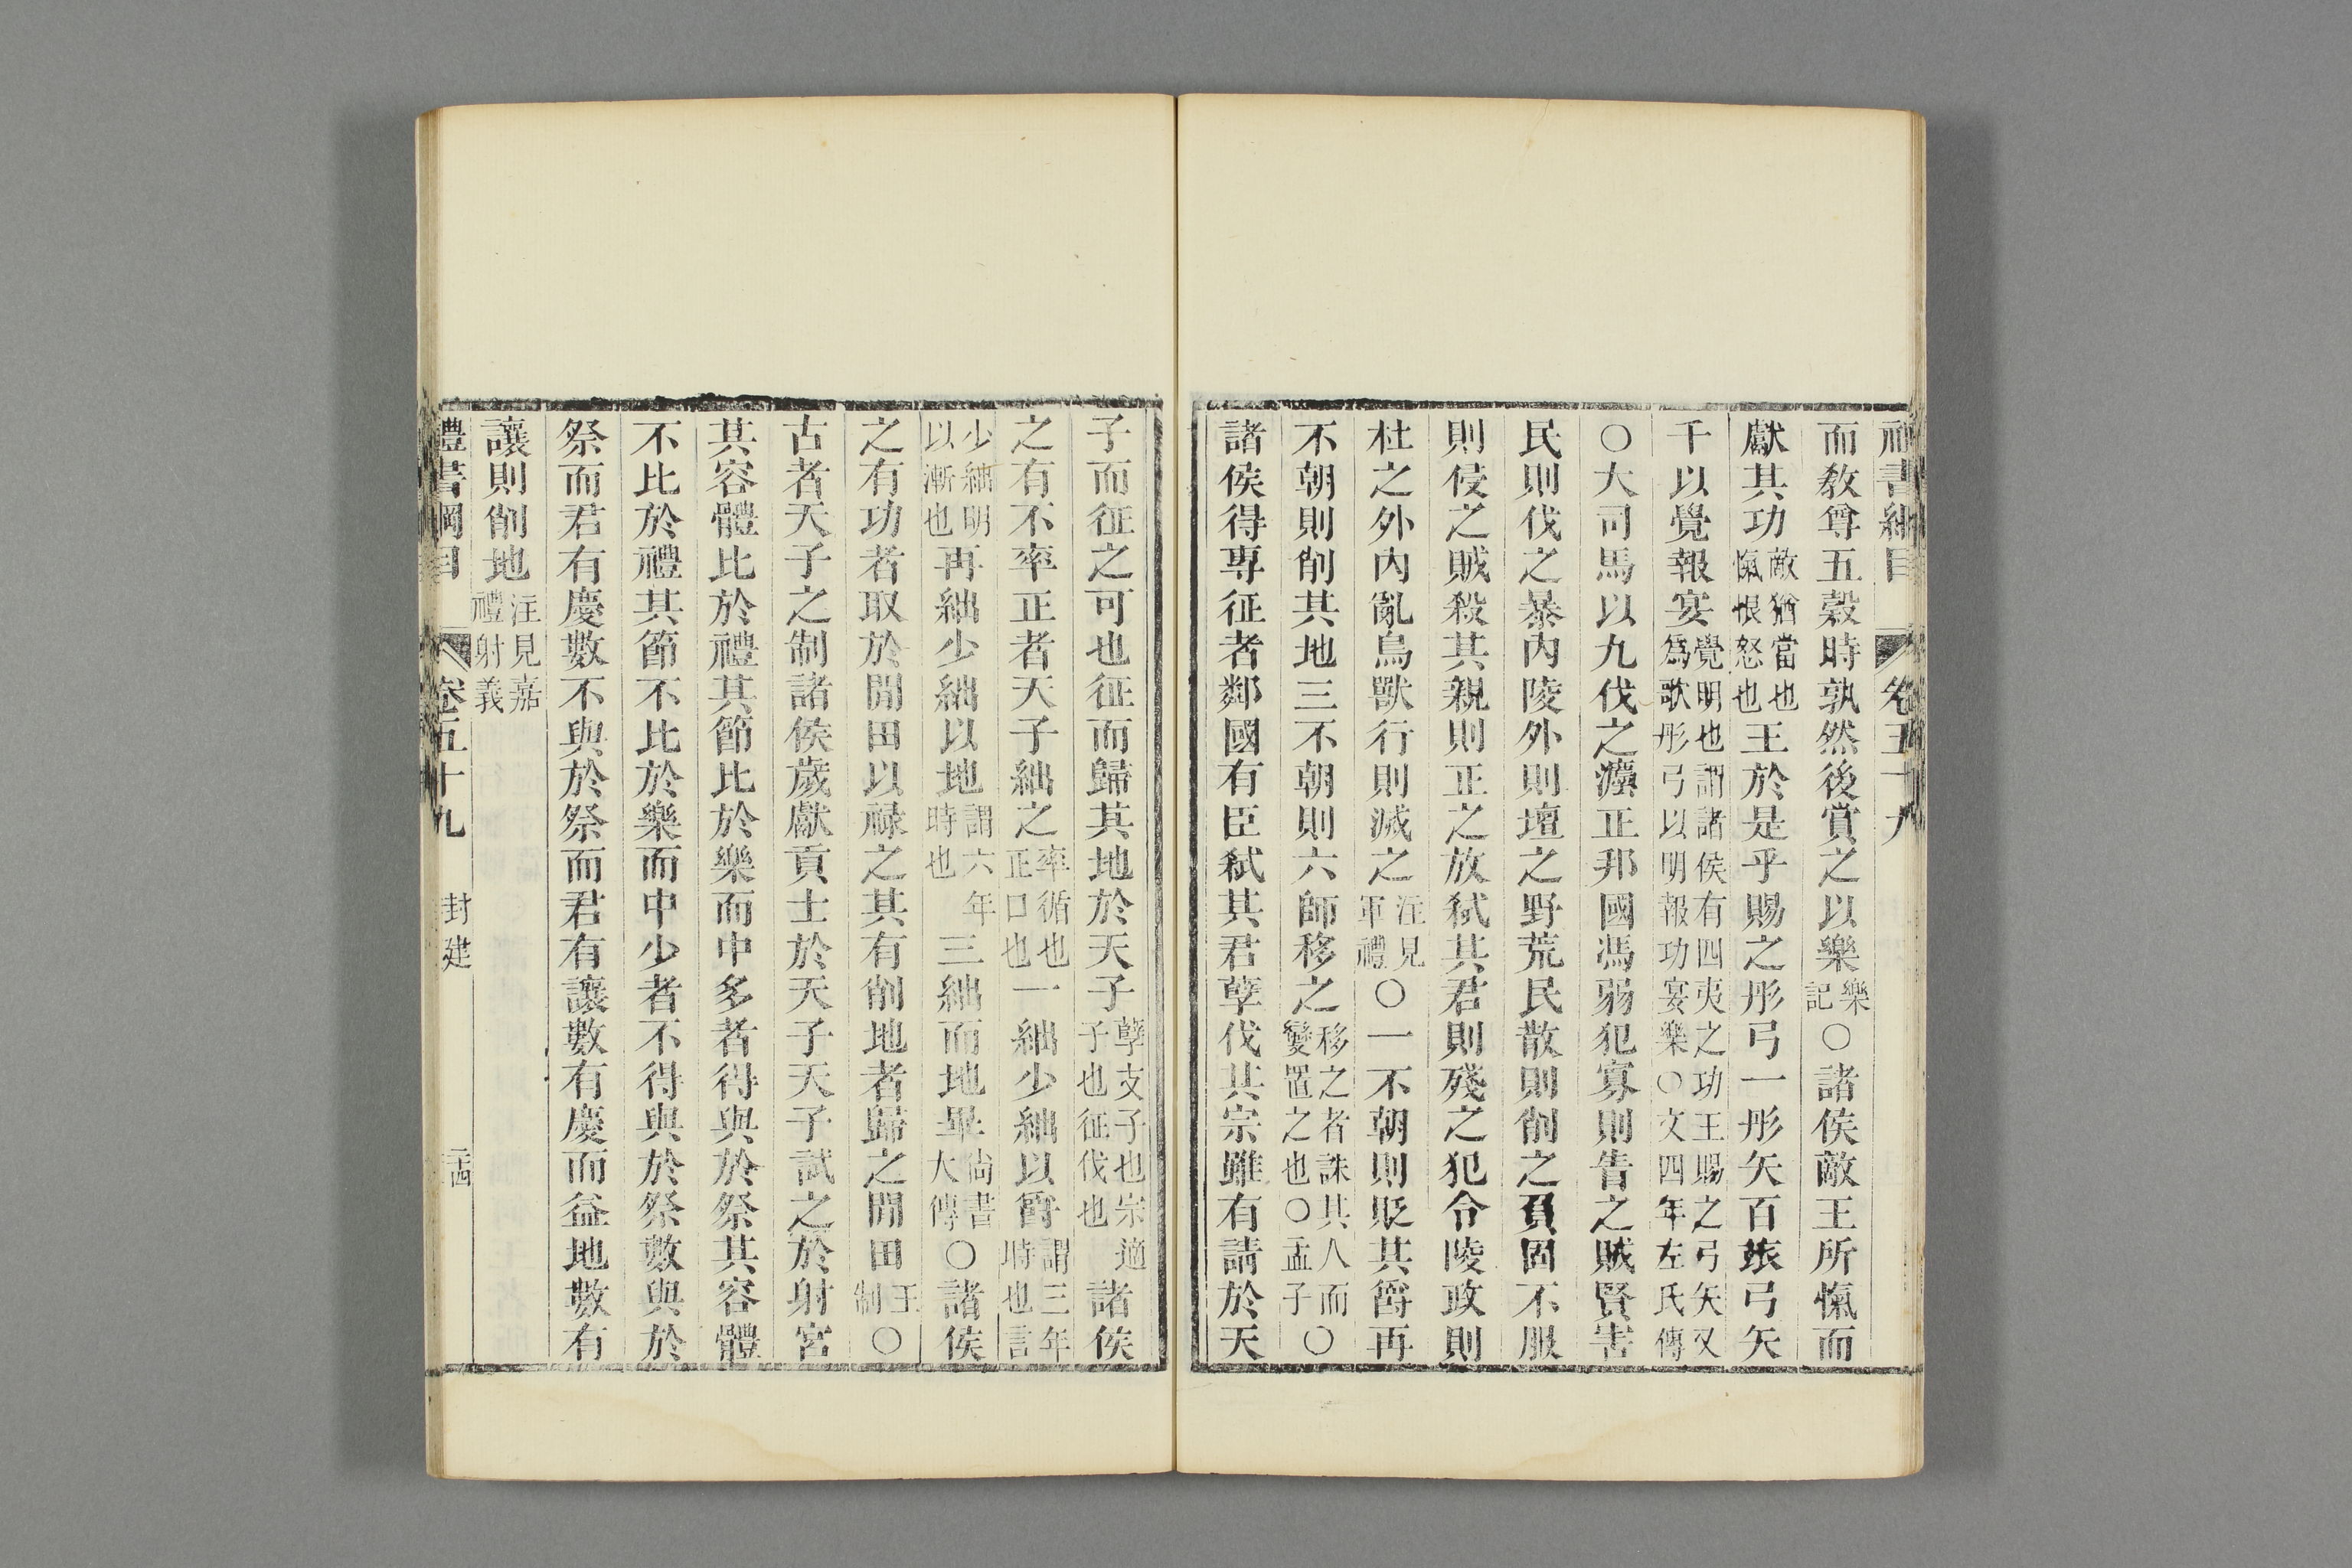 禮書綱目 卷五十九
而教尊五穀時孰然後賞之以樂樂記○諸侯敵王所愾而
獻其功敵猶當也愾恨怒也王於是乎賜之彤弓一彤矢百玈弓矢
千以覺報宴覺明也謂諸侯有四夷之功王賜之弓矢又爲歌彤弓以明報功宴樂○文四年左氏傳
○大司馬以九伐之灋正邦國馮弱犯寡則眚之賊賢害
民則伐之暴內陵外則壇之野荒民散則削之負固不服
則侵之賊殺其親則正之放弒其君則殘之犯令陵政則
杜之外內亂鳥獸行則滅之注見軍禮○一不朝則貶其爵再
不朝則削其地三不朝則六師移之移之者誅其人而變置之也○孟子○
諸侯得專征者鄰國有臣弒其君孽伐其宗雖有請於天
子而征之可也征而歸其地於天子孽支子也宗適子也征伐也諸侯
之有不率正者天子絀之率循也正口也一絀少絀以爵謂三年時也言
少絀明以漸也再絀少絀以地謂六年時也三絀而地畢尙書大傳○諸侯
之有功者取於閒田以祿之其有削地者歸之閒田王制○
古者天子之制諸侯歲獻貢士於天子天子試之於射宮
其容體比於禮其節比於樂而中多者得與於祭其容體
不比於禮其節不比於樂而中少者不得與於祭數與於
祭而君有慶數不與於祭而君有讓數有慶而益地數有
讓則削地注見嘉禮射義
禮書綱目 卷五十九 封建 二十四